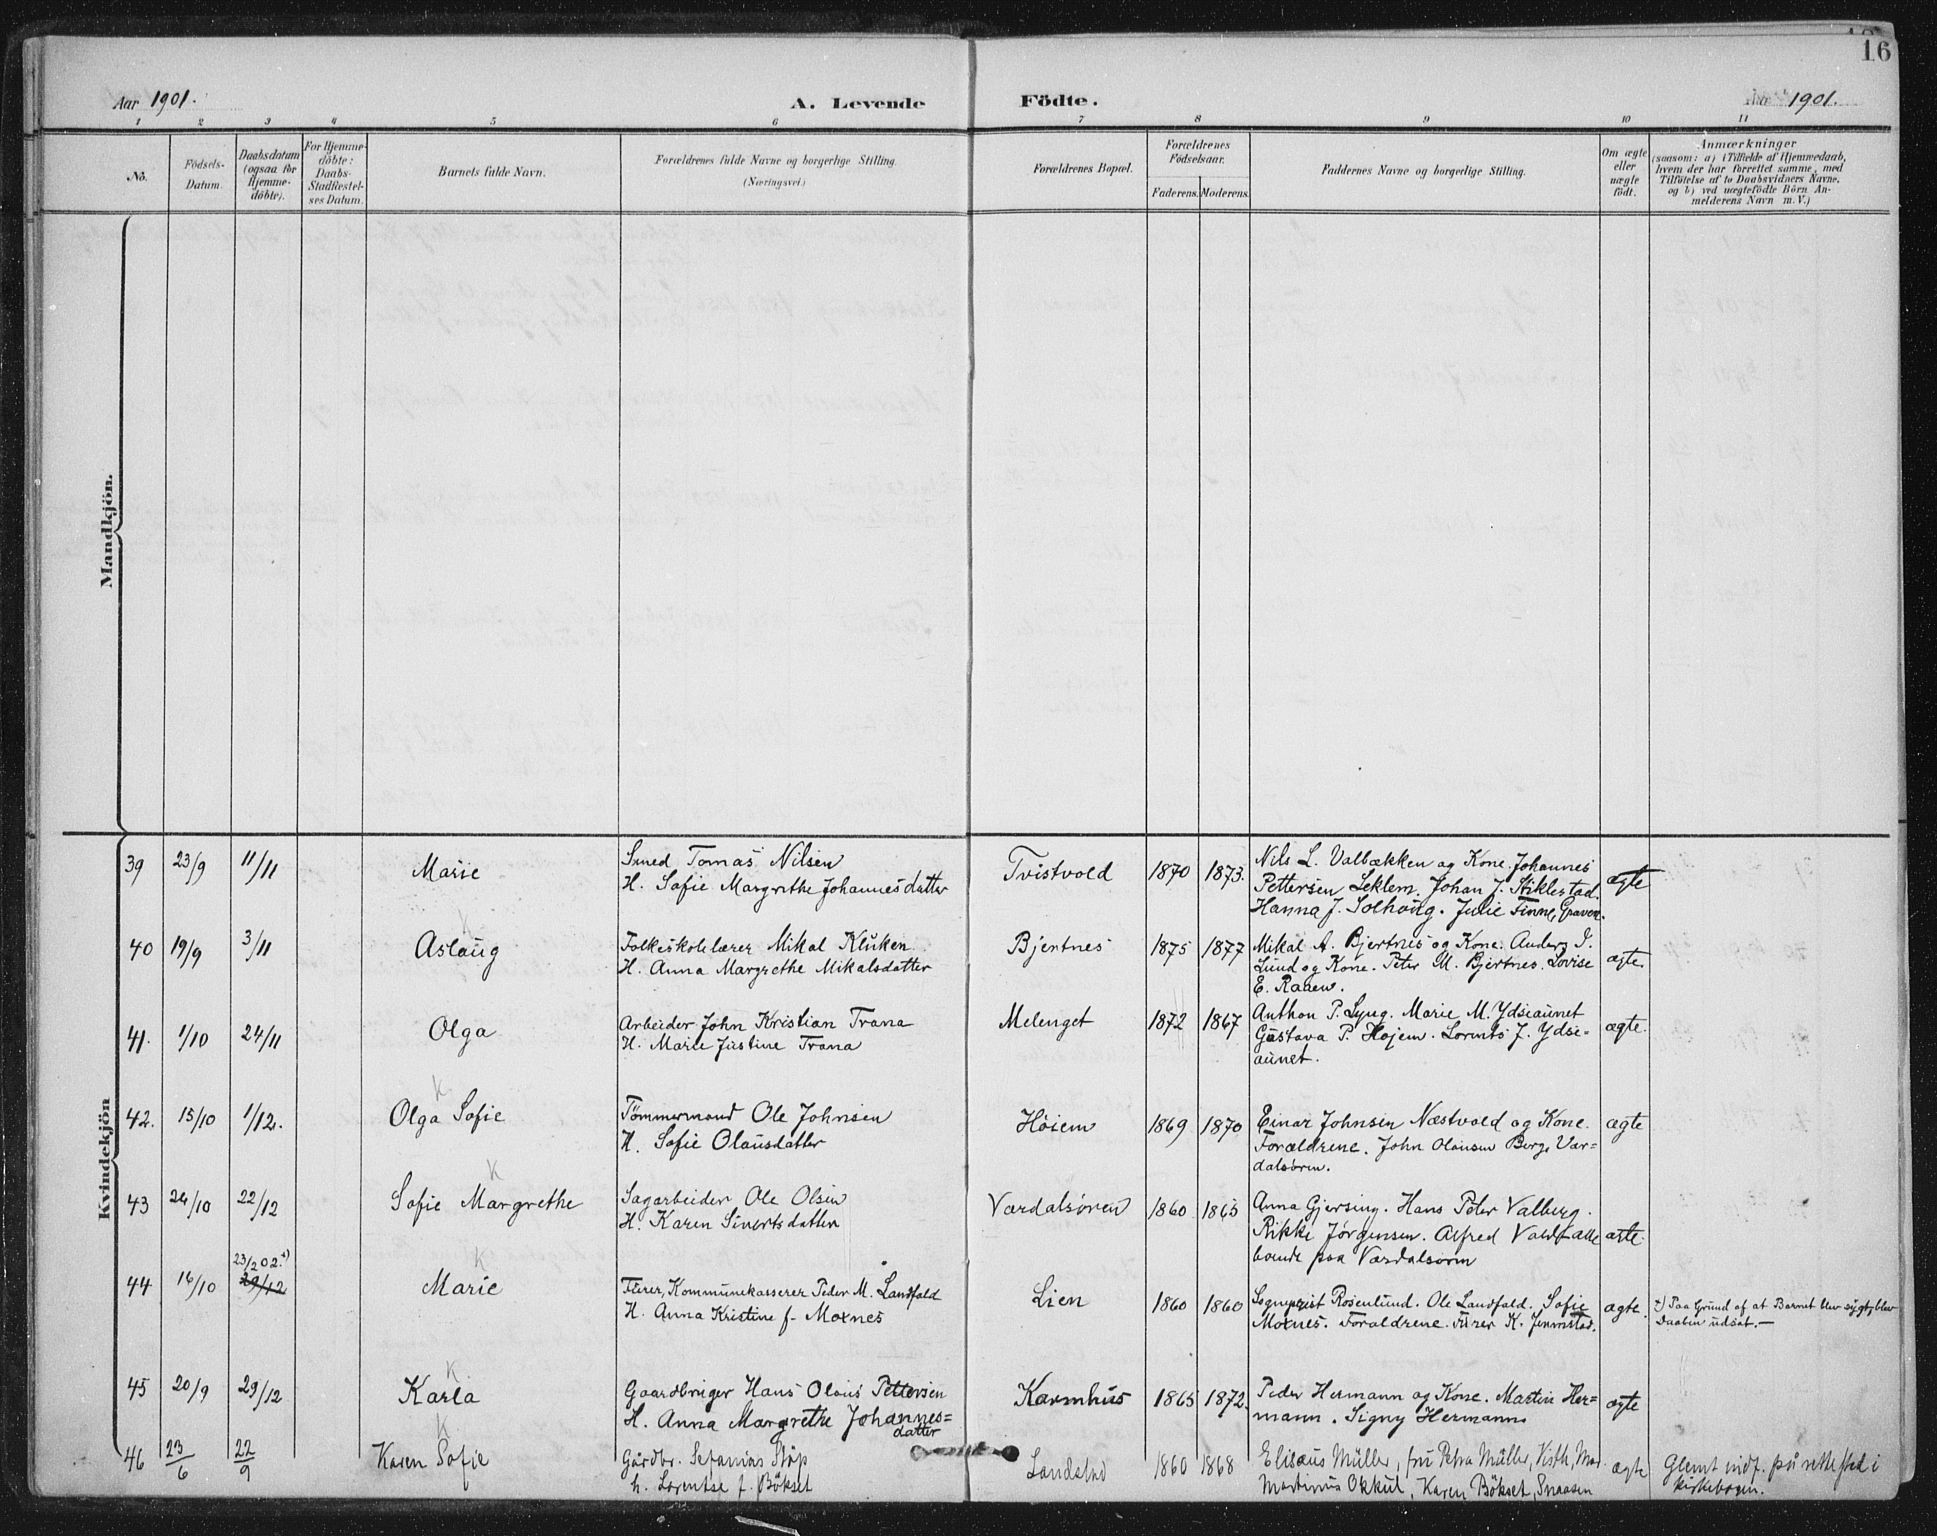 16
Aar 1901.
A. Levende Födte.
Aar 1901.
1 2 3 4 5 6 7 8 9 10 11
No.
Födsels-Datum.
Daabsdatum (ogsaa for Hjemme-döbte).
For Hjemme-döbte: Daabs-Stadfæstel-ses Datum.
Barnets fulde Navn.
Forældrenes fulde Navne og borgerlige Stilling.
(Næringsvei.)
Forældrenes Bopæl.
Forældrenes Födselsaar.
Faderens. Moderens.
Faddernes Navne og borgerlige Stilling.
Om ægte eller uægte födt.
Anmærkninger
(saasom: a) i Tilfælde af Hjemmedaab,
hvem der har forrettet samme, med
Tilföielse af to Daabsvidners Navne,
og b) ved uægtefödte Börn An-
melderens Navn m. V.)
Mandkjön.
Kvindekjön
39 23/9 11/11 Marie
Smed Tomas Nilsen
H. Sofie Margrethe Johannesdatter
Tvistvold 1870 1873.
Nils L. Valbækken og Kone. Johannes
Pettersen Leklem. Johan J. Stiklestad.
Hanna J. Solhoug. Julie Finne, Graven.
ægte
40 19/9 3/11 Aslaug
Folkeskolelærer Mikal Kluken
H. Anna Margrethe Mikalsdatter
Bjertnes 1875 1877
Mikal A. Bjertnes og Kone. Anders I.
Lund og Kone. Peter M. Bjertnes. Lovise
E. Raaen.
ægte.
41. 1/10 24/11 Olga
Arbeider John Kristian Trana
H. Marie Justine Trana
Melenget 1872 1867
Anthon P. Lyng. Marie M. Ydseaunet
Gustava P. Hojem. Lornts J. Ydse-
aunet.
ægte.
42. 15/10 1/12. Olga Sofie
Tømmermand Ole Johnsen
H. Sofie Olausdatter
Høiem 1869 1870
Einar Johnsen Næstvold og Kone.
Forældrene. John Olausen Berg, Vær-
dalsøren.
ægte
43 24/10 22/12 Sofie Margrethe
Sagarbeider Ole Olsen
H. Karen Sivertsdatter
Værdalsøren 1860 1865
Anna Gjersing. Hans Peter Valberg.
Rikke Jørgensen. Alfred Vold. Alle
boende paa Værdalsøren
ægte.
44 16/10 23/2 02. +) 29/12 Marie
Furer, Kommunekasserer Peder M. Landfald
H. Anna Kristine f. Moxnes
Lien 1860 1860
Sogneprest Rosenlund. Ole Landfald. Sofie
Moxnes. Forældrene. Furer K. Jermstad.
ægte.
+) Paa Grund af at Barnet blev sygt, blev
Daaben udsat.—
45 20/9 29/12 Karla
Gaardbruger Hans Olaus Pettersen
H. Anna Margrethe Johannes=
datter
Karmhus 1865 1872.
Peder Hermann og Kone. Martin Her=
mann. Signy Hermann
ægte
46 23/6 22/9 Karen Sofie
Gårdbr. Sefanias Støp
h. Lorentse f. Bökset
Landstad 1860 1868
Elisæus Müller, fru Petra Müller, Visth,
Martinus Okkul, Karen Bökset, Snaasen
ægte
Glemt indf. på rette sted i
kirkebogen.
K